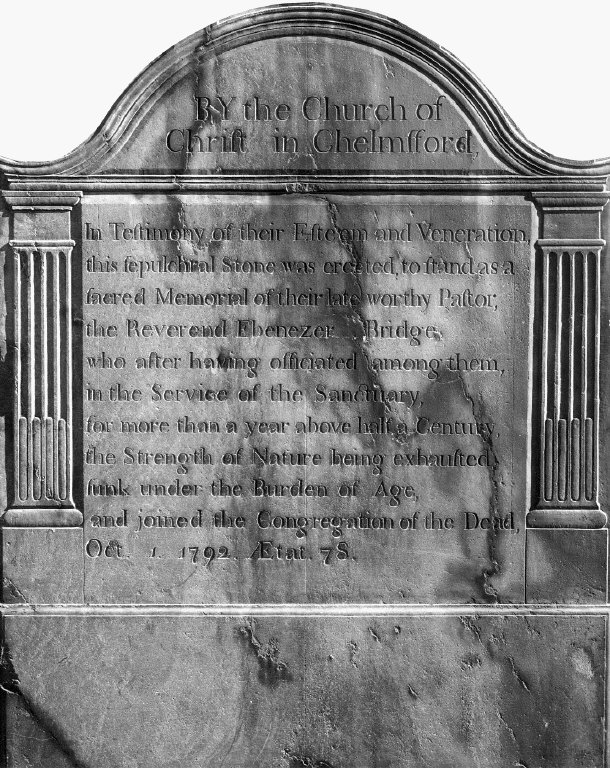 BY the Church of
Chriſt in Chelmſford,
In Teſtimony of their Eſteem and Veneration,
this ſepulchral Stone was erected, to ſtand as a
ſacred Memorial of their late worthy Paſtor,
the Reverend Ebenezer Bridge,
who after having officiated among them,
in the Service of the Sanctuary,
for more than a year above half a Century,
the Strength of Nature being exhauſted,
ſunk under the Burden of Age,
and joined the Congregation of the Dead,
Oct. 1. 1792. Ætat. 78.